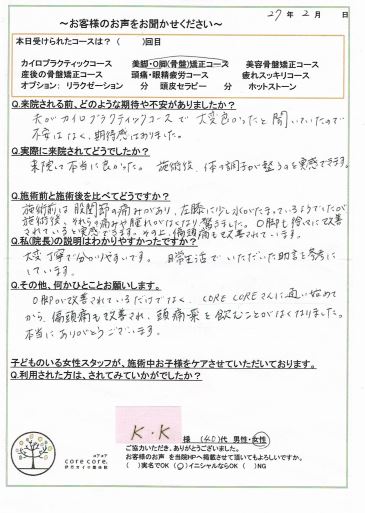 27年 2月　日
～お客様のお声をお聞かせください～
本日受けられたコースは？（　）回目
カイロプラクティックコース　美脚・O脚(骨盤)矯正コース　美容骨盤矯正コース
産後の骨盤矯正コース　頭痛・眼精疲労コース　疲れスッキリコース
オプション： リラクゼーション　分　頭皮セラピー　分　ホットストーン
Q.来院される前、どのような期待や不安がありましたか？
夫がカイロプラクティックコースで大変良かったと聞いていたので
不安はなく、期待感はありました。
Q.実際に来院されてどうでしたか？
来院して本当に良かった。施術後、体の調子が整うのを実感できます。
Q.施術前と施術後を比べてどうですか？
施術前は股関節の痛みがあり、左膝に少し水がたまっているようでしたが
施術後、それらの痛みや腫れがなくなり驚きました。O脚も徐々に改善
されていると実感できます。その上、偏頭痛も改善されています。
Q.私(院長)の説明はわかりやすかったですか？
大変丁寧で分かりやすいです。日常生活でいただいた助言を参考に
しています。
Q.その他、何かひとことお願いします。
O脚が改善されているだけでなく、CORE COREさんに通い始めて
から、偏頭痛も改善され、頭痛薬を飲むことがなくなりました。
本当にありがとうございます。
子どものいる女性スタッフが、施術中お子様をケアさせていただいております。
Q.利用された方は、されてみていかがでしたか？
K・K
様 （40）代 男性・女性
ご協力いただき、ありがとうございました。
お客様のお声 を当院HPへ掲載させて頂いてもよろしいですか。
（　）実名でOK （○）イニシャルならOK （　）NG
コアコア
core core.